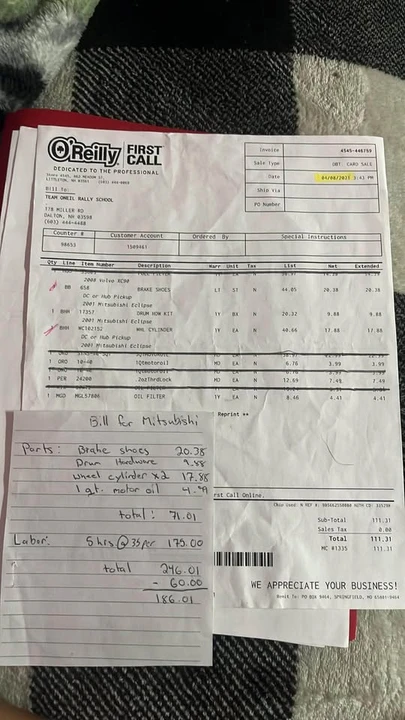 O'Reilly FIRST CALL
DEDICATED TO THE PROFESSIONAL
LITTLETON, NH 03561
Invoice 4545-446759
Sale Type DBT. CARD SALE
Date 04/08/2021 3:43 PM
Ship Via
PO Number
Bill To:
TEAM ONEIL RALLY SCHOOL
178 MILLER RD
DALTON, NH 03598
(603) 444-4488
Counter # Customer Account Ordered By Special Instructions
98653 1509481
Qty Line Item Number Description Warr Unit Tax List Net Extended
2008 Volvo XC90
BB 658 BRAKE SHOES LT ST N 44.05 20.38 20.38
DC or Hub Pickup
2001 Mitsubishi Eclipse
1 BHH 17357 DRUM HDW KIT 1Y BX N 20.32 9.88 9.88
DC or Hub Pickup
2001 Mitsubishi Eclipse
BHH WC102192 WHL CYLINDER 1Y EA N 40.66 17.88 17.88
DC or Hub Pickup
2001 Mitsubishi Eclipse
1 ORO 10-40 1Qtmotoroil MD EA N 6.76 3.99 3.99
1 PER 24200 .2ozThrdLock MD EA N 12.69 7.49 7.49
1 MGD MGL57806 OIL FILTER 1Y EA N 8.46 4.41 4.41
Reprint **
First Call Online.
Sub-Total 111.31
Sales Tax 0.00
Total 111.31
MC #1335 111.31
WE APPRECIATE YOUR BUSINESS!
Remit To: PO BOX 9464, SPRINGFIELD, MO 65801-9464
Bill for Mitsubishi
Parts: Brake shoes 20.38
Drum Hardware 9.88
wheel cylinder x2 17.88
1 qt. motor oil 4.99
total: 71.01
Labor: 5 hrs @ 35 per 175.00
total 246.01
- 60.00
186.01